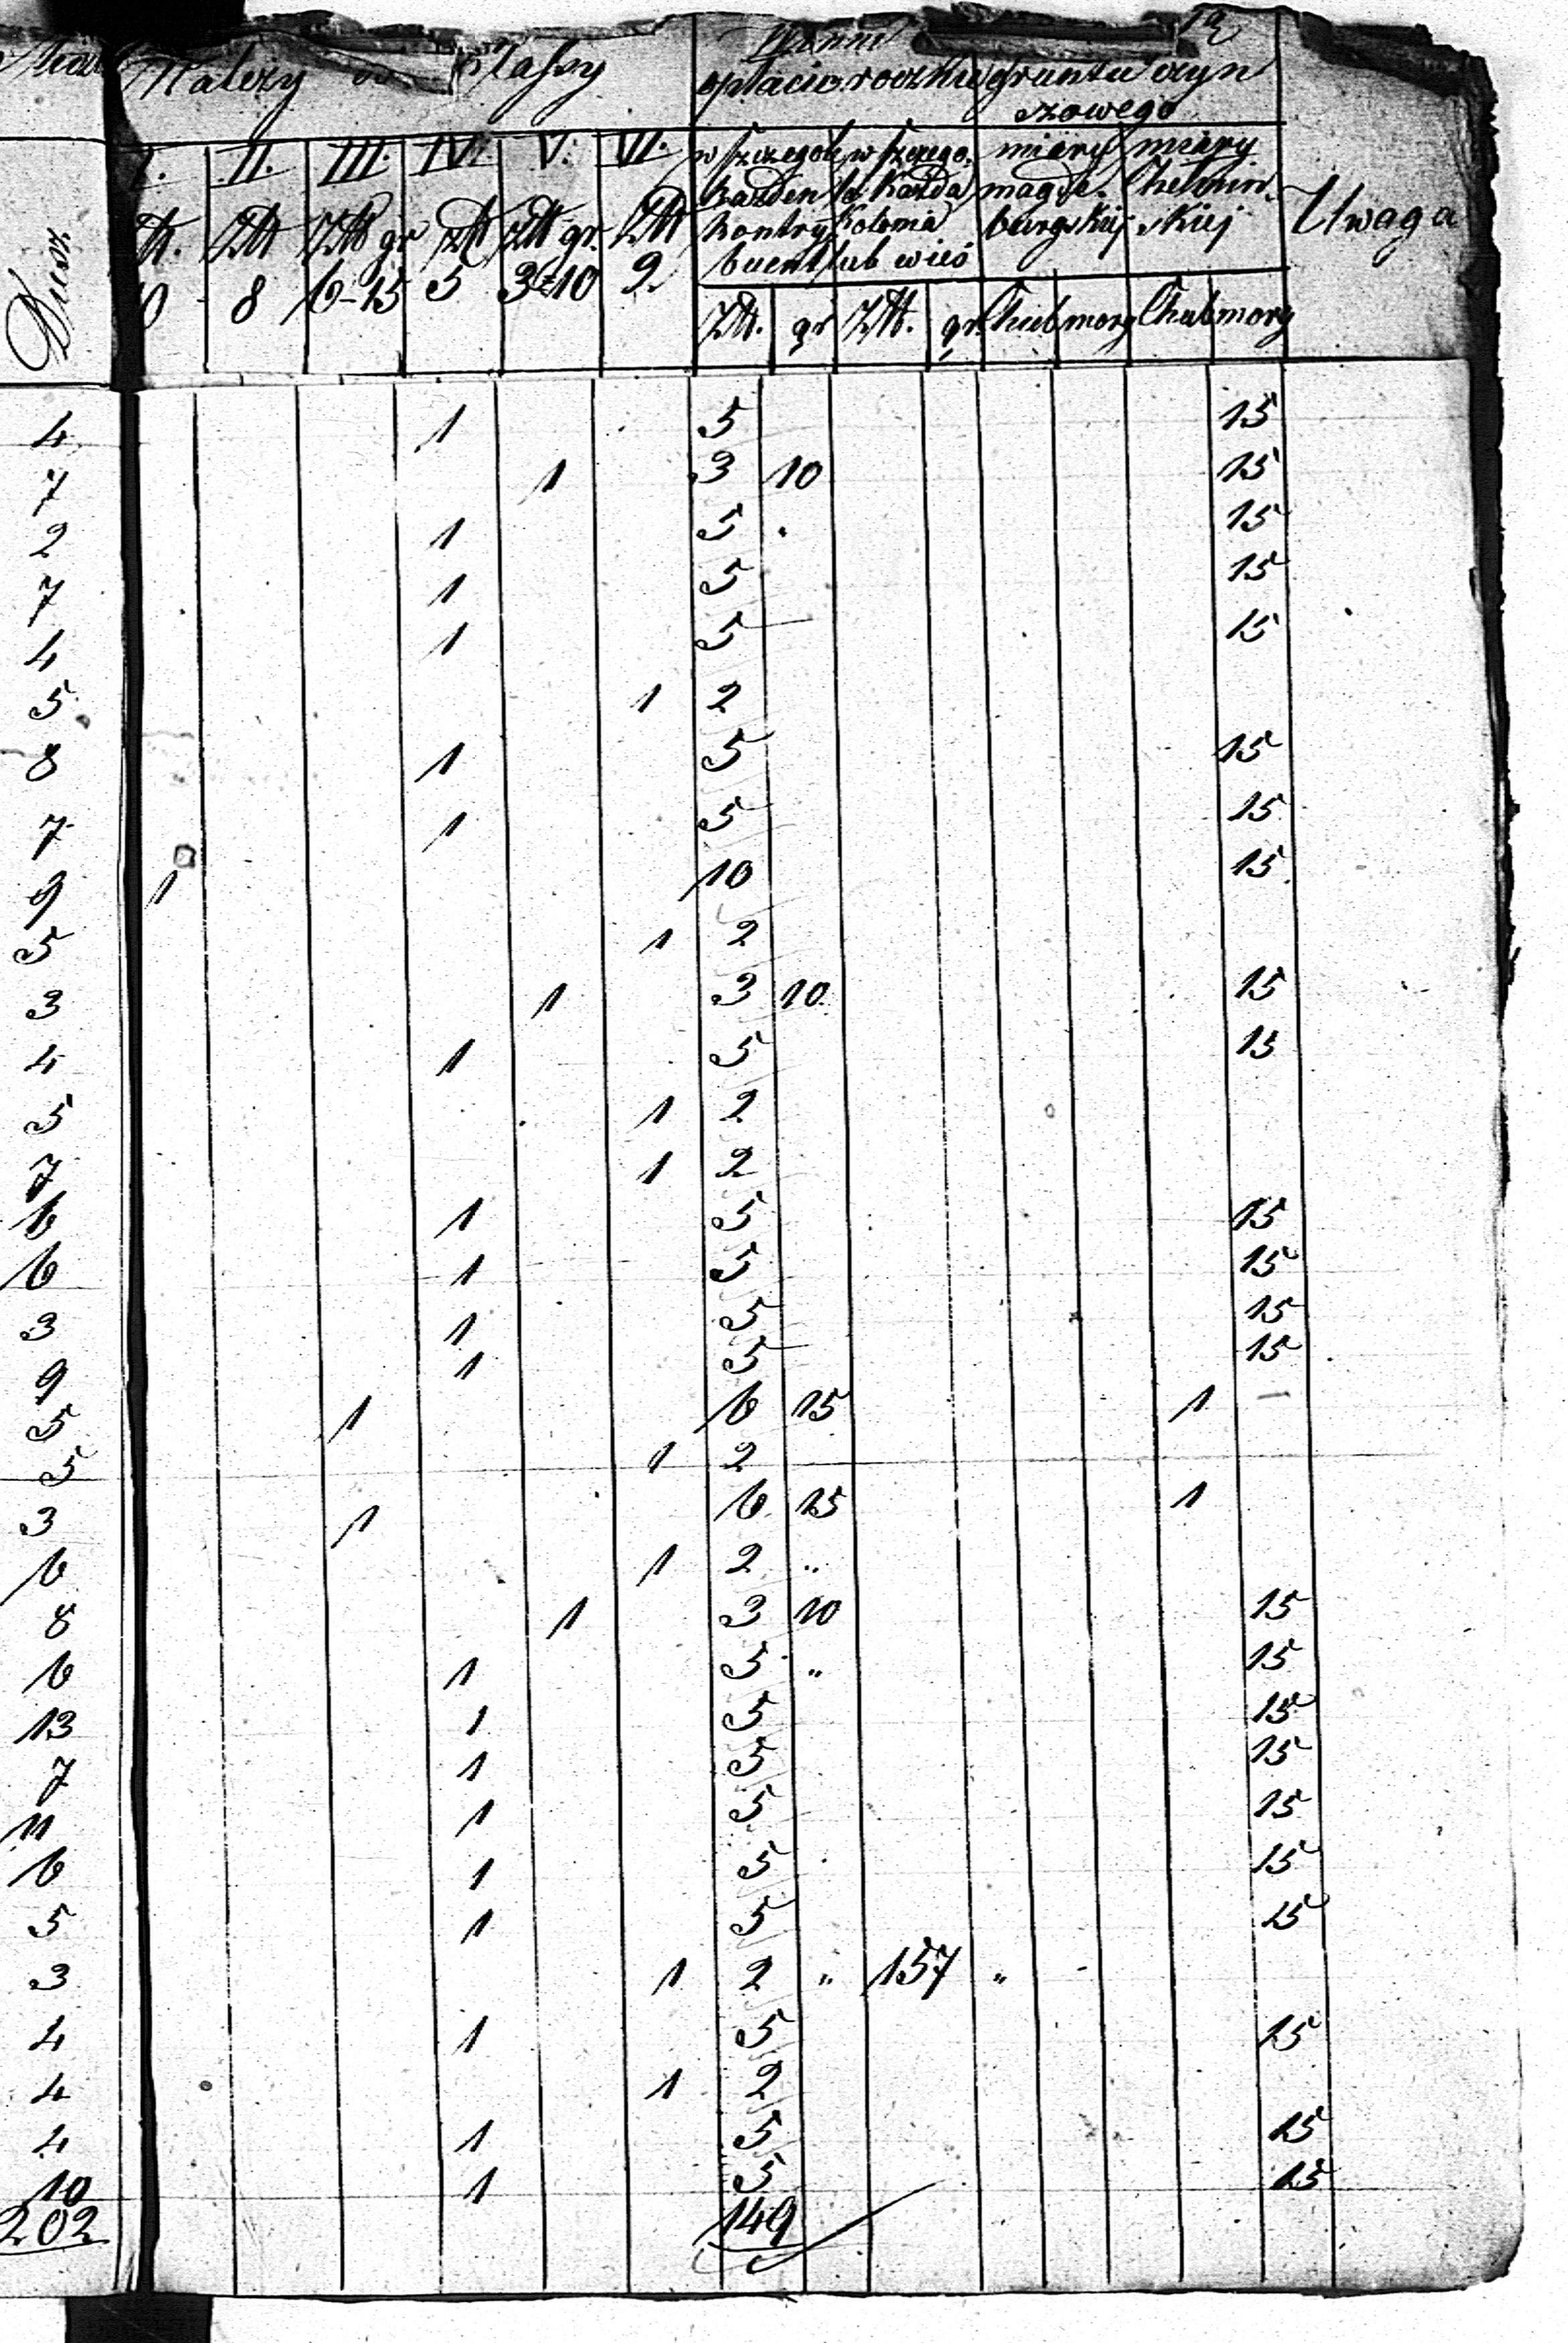 Należy Klassy
winni
opłacić rocznie gruntu czyn
szowego
I. II. III. IV. V. VI. w szczegól w szczegó. miary miary
każden ka\u017cda magde. Chełmin.
kontry Kolonia burgskiej skiej Uwaga
buent lub wieś
Ztt. Ztt Ztt gr ztt ztt gr. Ztt
Dusz 10 8 6-15 5 3-10 2
Ztt. gr Ztt. gr. Chub morg Chub morg
4 1 5 15
7 1 3 10 15
2 1 5 . 15
7 1 5 15
4 1 5 15
5 1 2
8 1 5 15
7 1 5 15
9 1 10 15
5 1 2
3 1 3 10 15
4 1 5 15
5 1 2
7 1 2
6 1 5 15
6 1 5 15
3 1 5 15
9 1 5 15
5 1 6 15 1 –
5 1 2
3 1 6 15 1
6 1 2 "
8 1 3 10 15
6 1 5 " 15
13 1 5 15
7 1 5 15
11 1 5 15
6 1 5 15
5 1 5 15
3 1 2 " 157 "
4 1 5 15
4 1 2
4 1 5 15
10 1 5 15
202 149